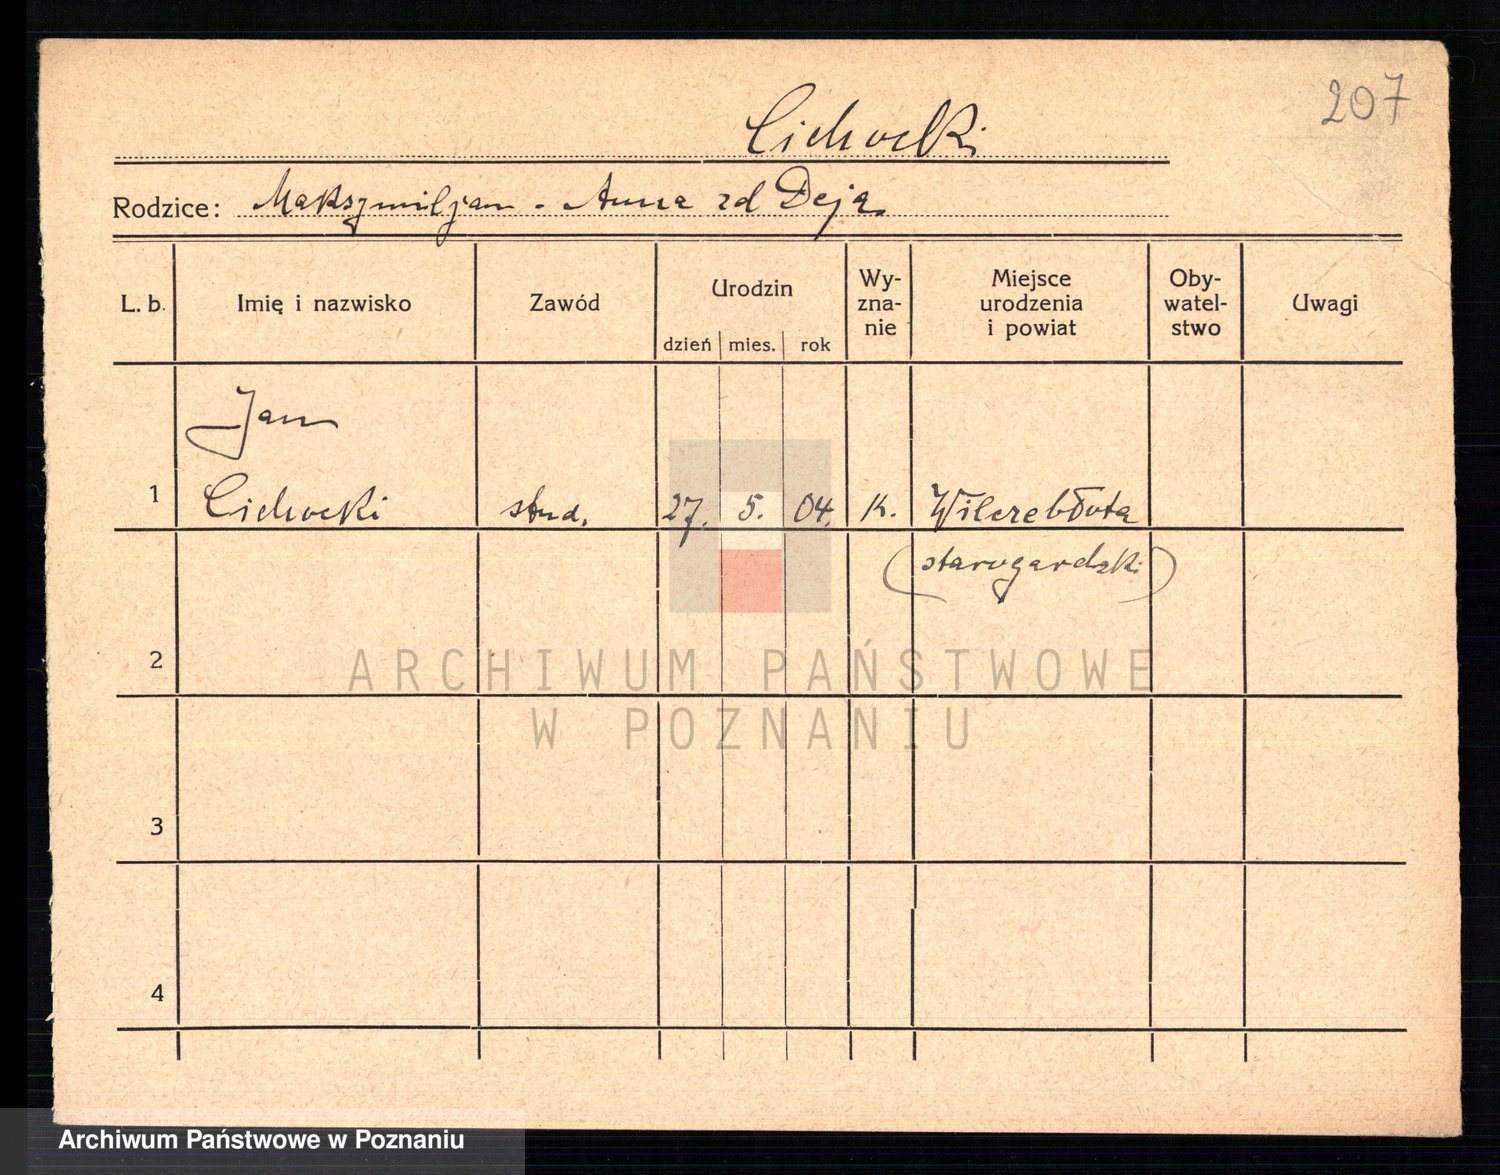 207
Cichocki
Rodzice: Maksymiljan - Anna zd Deja
L. b. Imię i nazwisko Zawód Urodzin Wy-zna-nie Miejsce urodzenia i powiat Oby-watel-stwo Uwagi
dzień mies. rok
Jan
1 Cichocki stud. 27. 5. 04. K. Wilczebłota
(starogardzki)
2
ARCHIWUM PAŃSTWOWE
W POZNANIU
3
4
Archiwum Państwowe w Poznaniu